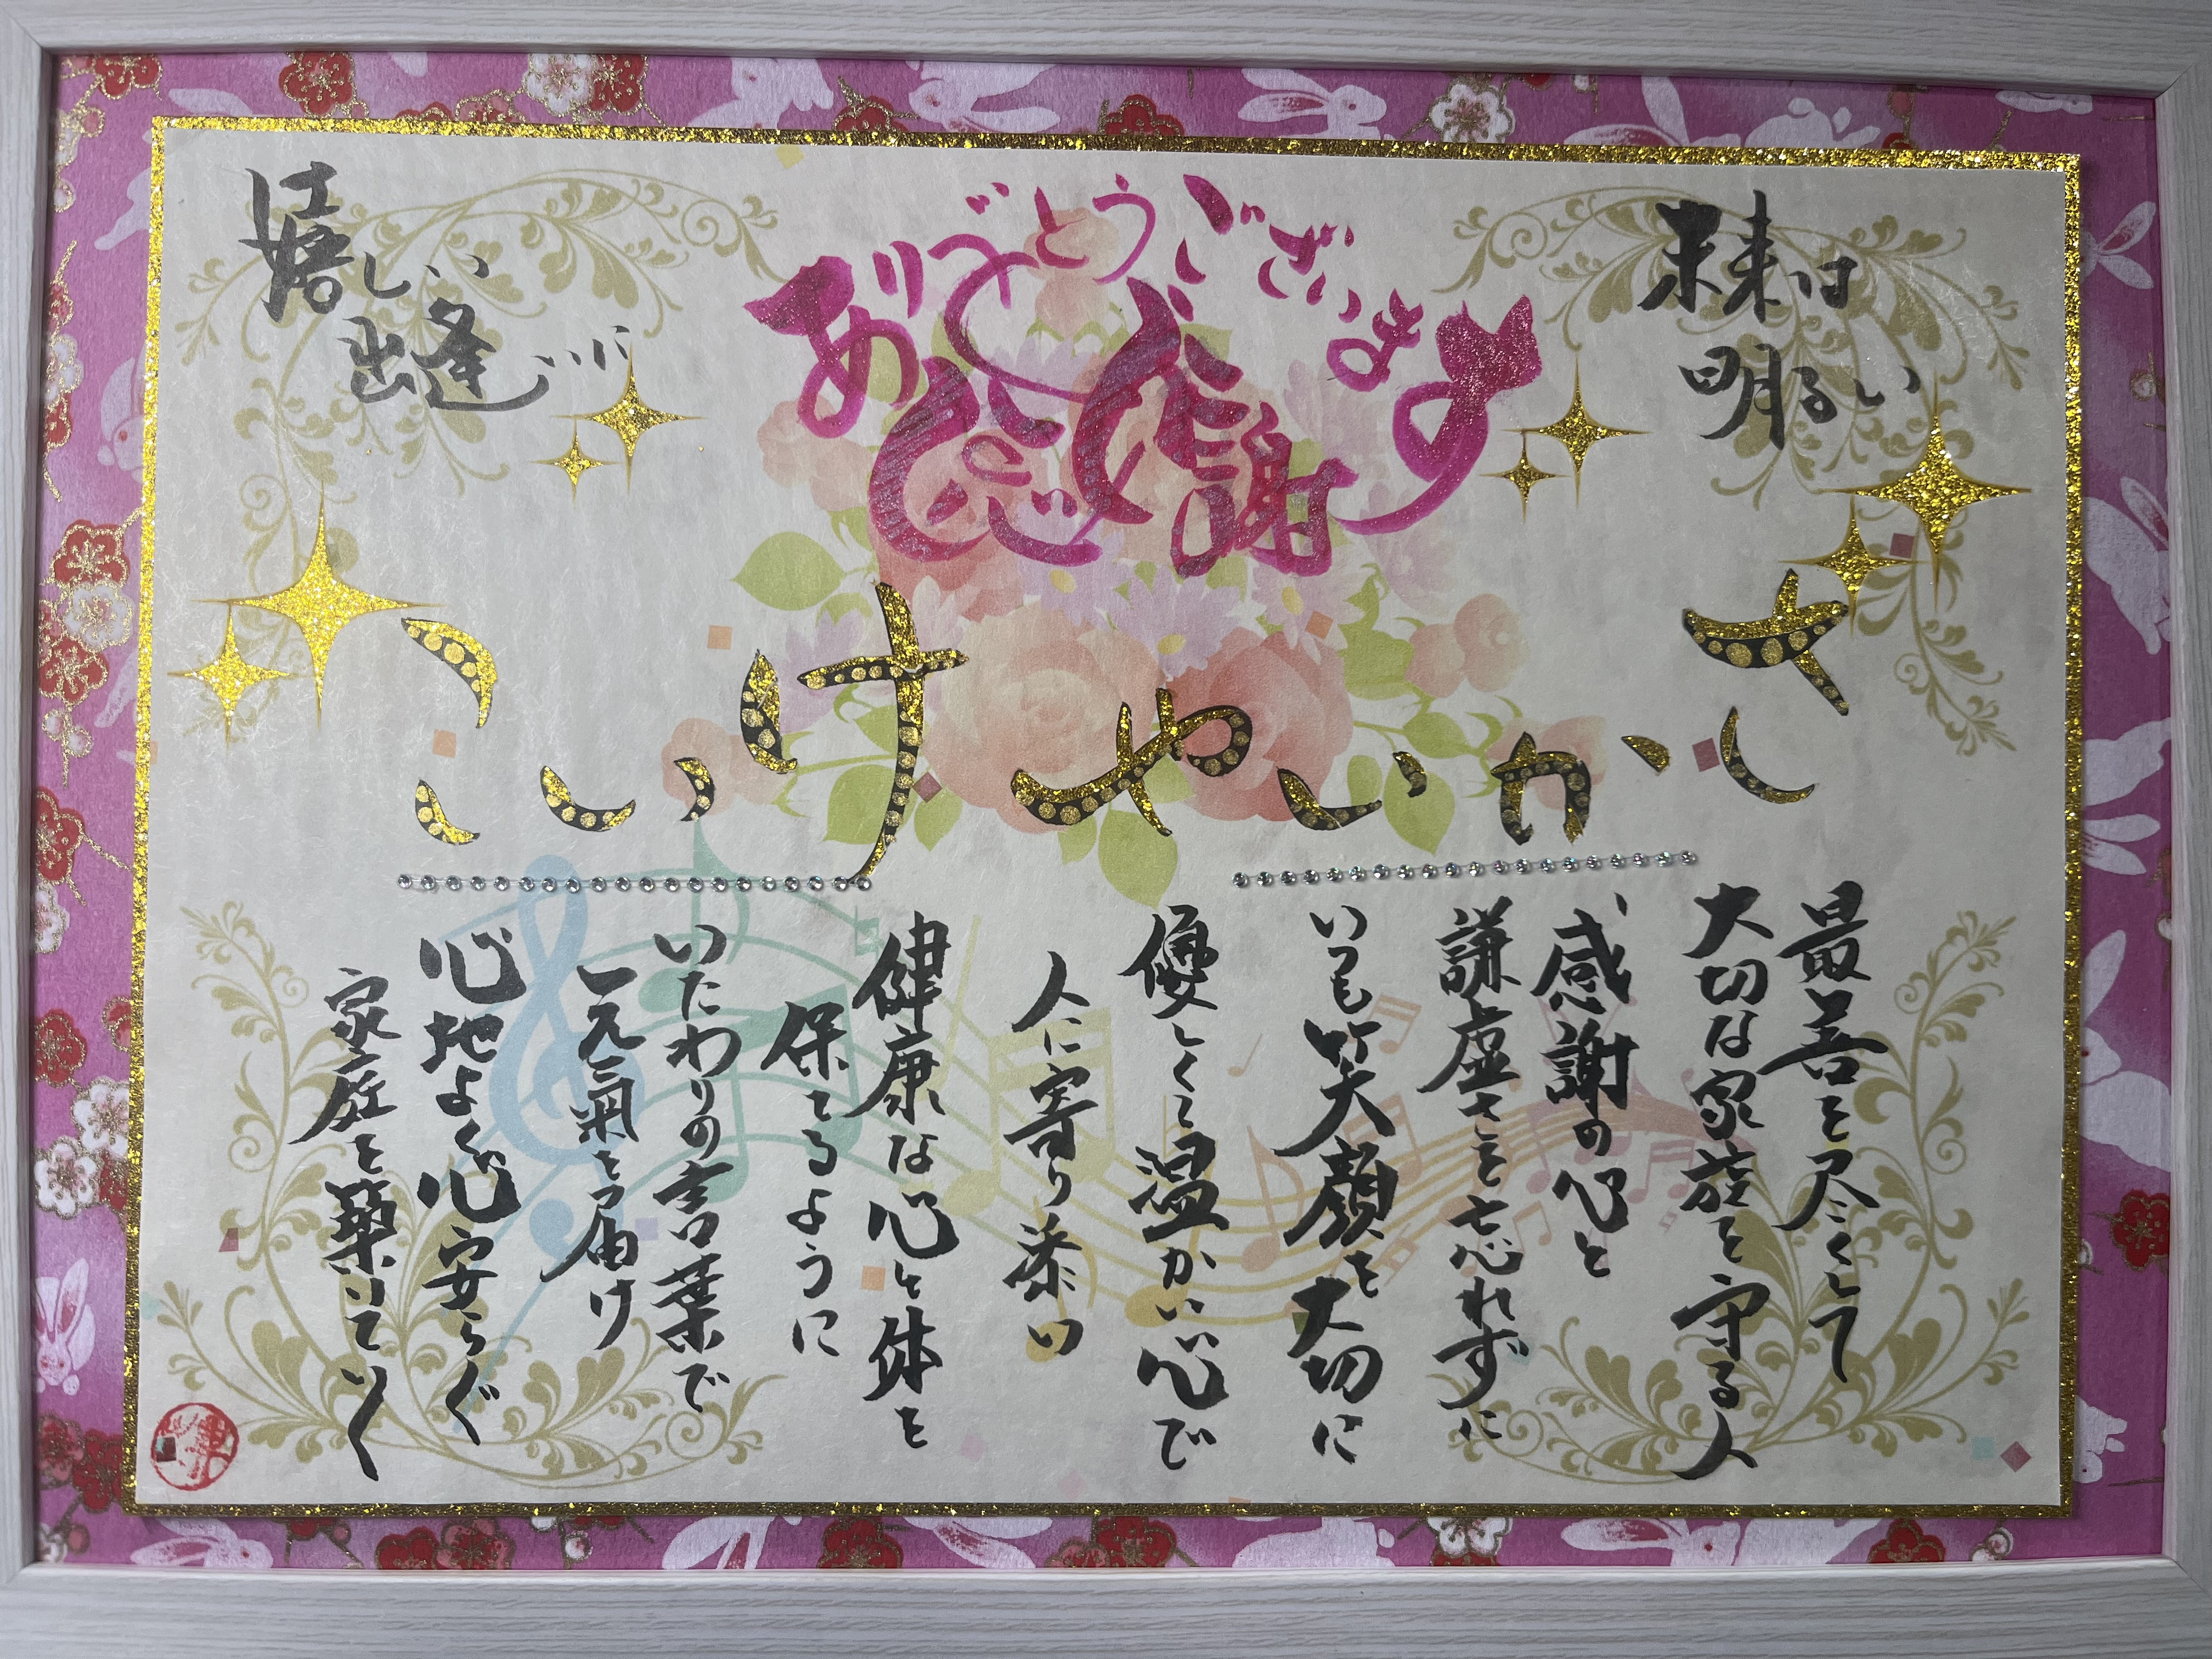 未来は
明るい
ありがとうございます
感謝
嬉しい
出逢いに
さかいや けいこ
最善を尽くして
大切な家族を守る人
感謝の心と
謙虚さを忘れずに
いつも笑顔を大切に
優しくて温かい心で
人に寄り添い
健康な心と体を
保てるように
いたわりの言葉で
元氣をお届け
心地よく心安らぐ
家庭を築いていく